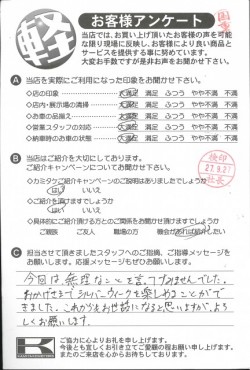 軽
お客様アンケート
当店では、お買い上げ頂いたお客様の声を可能
な限り現場に反映し、お客様により良い商品と
サービスを提供する事に努めています。
大変お手数ですが是非お声をお聞かせ下さい。
A 当店を実際にご利用になった印象をお聞かせ下さい。
◇店の印象 大満足 満足 ふつう やや不満 不満
◇店内・展示場の清掃 大満足 満足 ふつう やや不満 不満
◇お車の品揃え 大満足 満足 ふつう やや不満 不満
◇営業スタッフの対応 大満足 満足 ふつう やや不満 不満
◇納車時のお車の状態 大満足 満足 ふつう やや不満 不満
B 当店はご紹介を大切にしております。
ご紹介キャンペーンについてお聞かせ下さい。
◇カミタケご紹介キャンペーンのご説明はありましたでしょうか
はい いいえ
◇ご紹介を頂けますでしょうか
はい いいえ
◇具体的にご紹介頂ける方とのご関係をお聞かせ頂けますでしょうか
ご親戚 ご友人 職場の方 機会があれば紹介したい
検印
27.9.21
社長
C 担当させて頂きましたスタッフへのご指摘、ご指導メッセージを
お願いします。応援メッセージもぜひお願いします。
今回は、無理なことを言ってすみませんでした。
おかげさまでシルバーウィークを楽しめることがで
きました。これからもお世話になると思いますが、よろ
しくお願いします。
K
ご協力に心よりお礼を申し上げます。
今後とも宜しくお引き立てご愛顧の程お願い申し上げます。
またのご来店を心からお待ちしております。